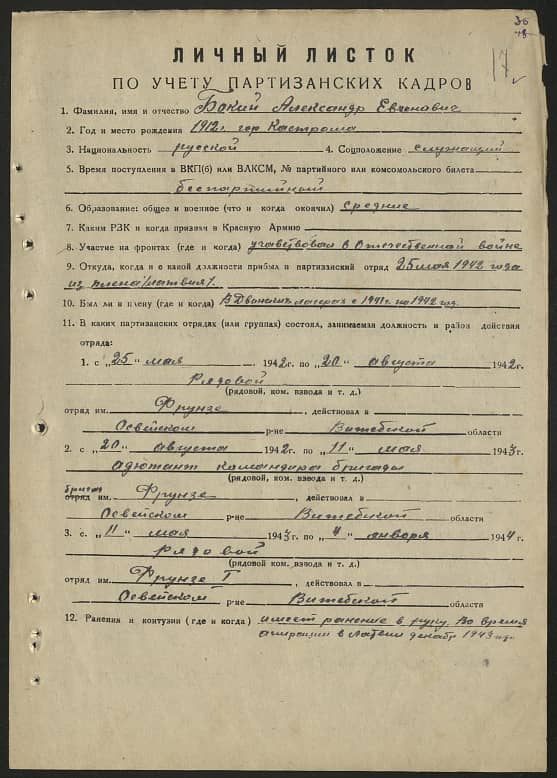 36
18
17
ЛИЧНЫЙ ЛИСТОК
ПО УЧЕТУ ПАРТИЗАНСКИХ КАДРОВ
1. Фамилия, имя и отчество Бокий Александр Евгеновис
2. Год и место рождения 1912г гор Кастрома
3. Национальность русской 4. Соцположение служащий
5. Время поступления в ВКП(б) или ВЛКСМ, № партийного или комсомольского билета
беспартийный
6. Образование: общее и военное (что и когда окончил) средние
7. Каким РЗК и когда призван в Красную Армию
8. Участие на фронтах (где и когда) учавствовал в Отечественной войне
9. Откуда, когда и с какой должности прибыл в партизанский отряд 25 мая 1942 года
из плена /латвия/.
10. Был ли в плену (где и когда) В Двинских лагерях с 1941 г. по 1942 год
11. В каких партизанских отрядах (или группах) состоял, занимаемая должность и район действия
отряда:
1. с „25“ мая 1942 г. по „20“ августа 1942 г.
Рядовой
(рядовой, ком. взвода и т. д.)
отряд им. Фрунзе, действовал в
Освейском р-не Витебской области
2. с „20“ августа 1942 г. по „11“ мая 1943 г.
адютант командира бригады
(рядовой, ком. взвода и т. д.)
бригад
отряд им. Фрунзе, действовал в
Освейском р-не Витебской области
3. с. „11“ мая 1943 г. по „4“ января 1944 г.
рядовой
(рядовой, ком. взвода и т. д.)
отряд им. Фрунзе Т, действовал в
Освейском р-не Витебской области
12. Ранения и контузии (где и когда) имеет ранение в руку. Во время
операции в Латвии декабр 1943 г.